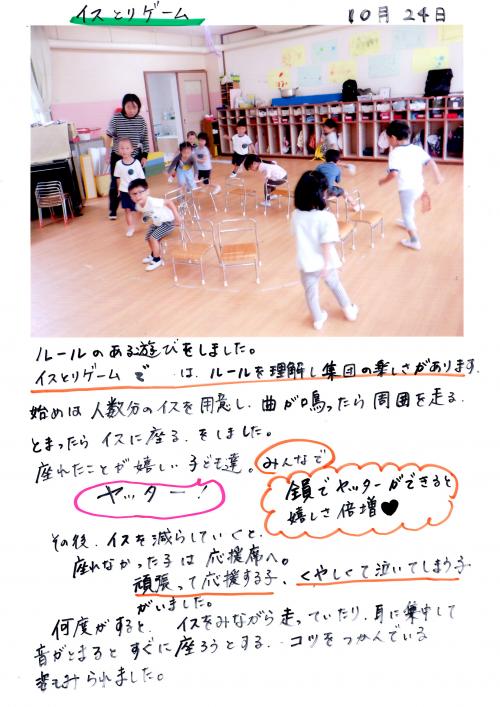 イスとりゲーム 10月24日
ルールのある遊びをしました。
イスとりゲームでは、ルールを理解し集団の楽しさがあります。
始めは人数分のイスを用意し、曲が鳴ったら周囲を走る、
とまったらイスに座る、をしました。
座れたことが嬉しい子ども達。みんなで
ヤッター!
全員でヤッターができると
嬉しさ倍増♥
その後、イスを減らしていくと、
座れなかった子は応援席へ。
頑張って応援する子、くやしくて泣いてしまう子
がいました。
何度かすると、イスをみながら走っていたり、耳に集中して
音がとまるとすぐに座ろうとする、コツをつかんでいる
姿もみられました。